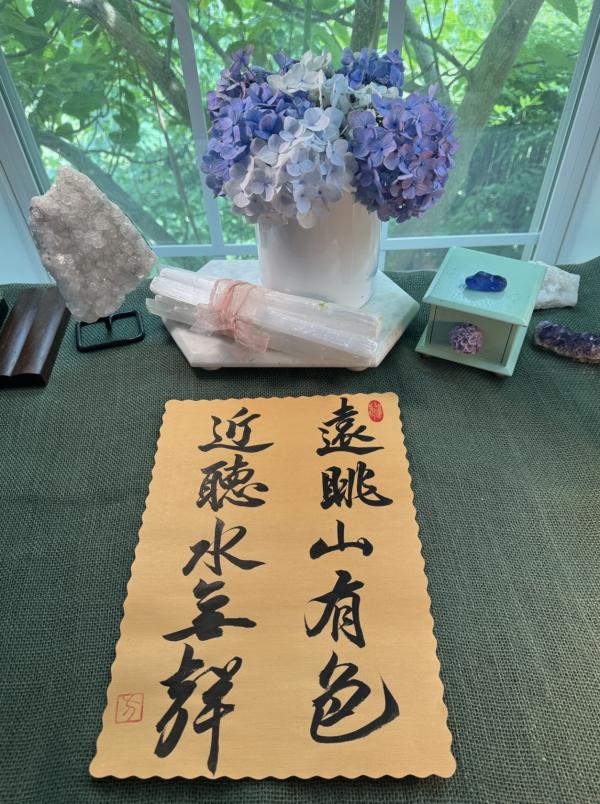 遠眺山有色
近聽水無聲